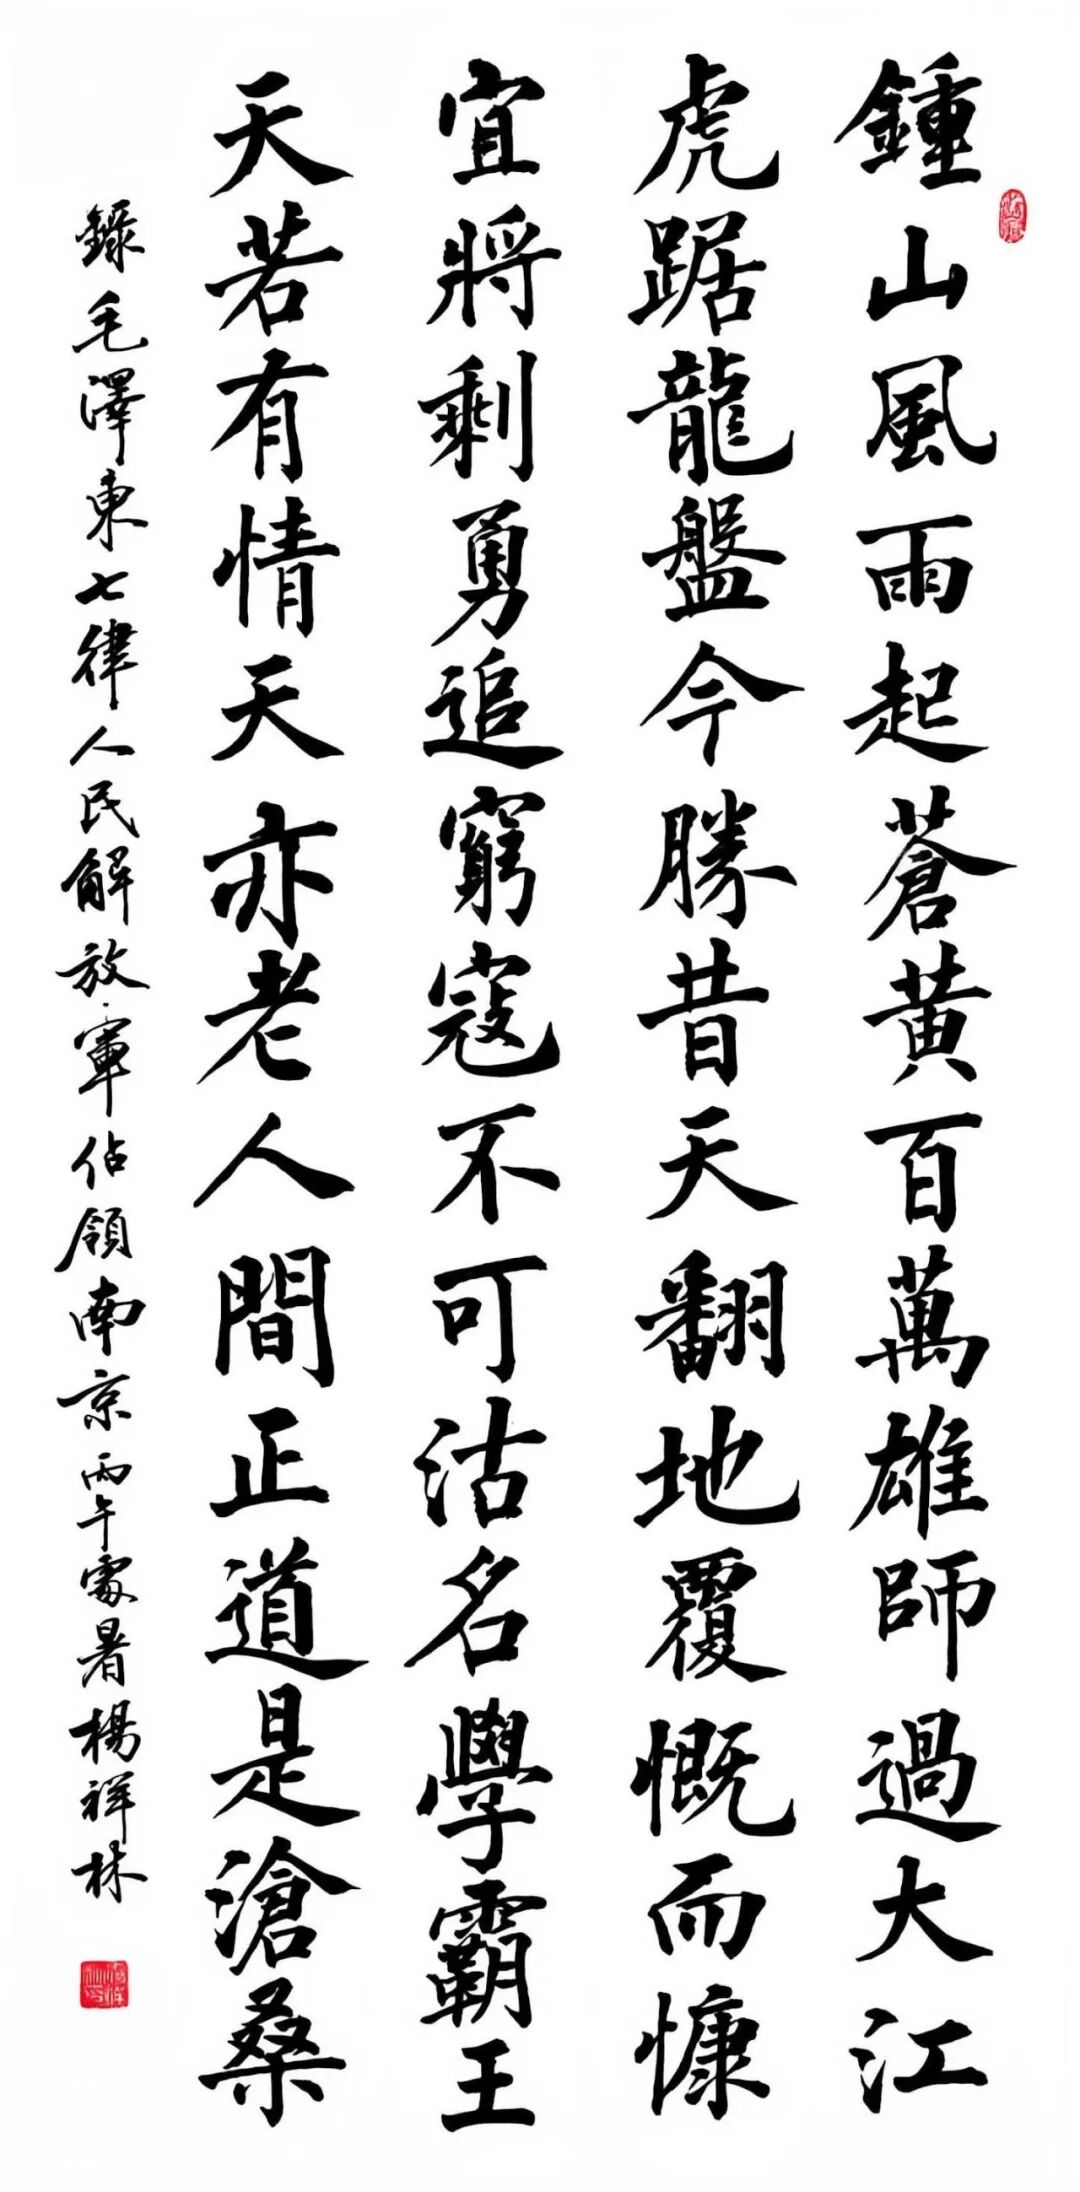 鍾山風雨起蒼黃百萬雄師過大江
虎踞龍盤今勝昔天翻地覆慨而慷
宜將剩勇追窮寇不可沽名學霸王
天若有情天亦老人間正道是滄桑
錄毛澤東七律人民解放軍佔領南京丙午處暑楊祥林